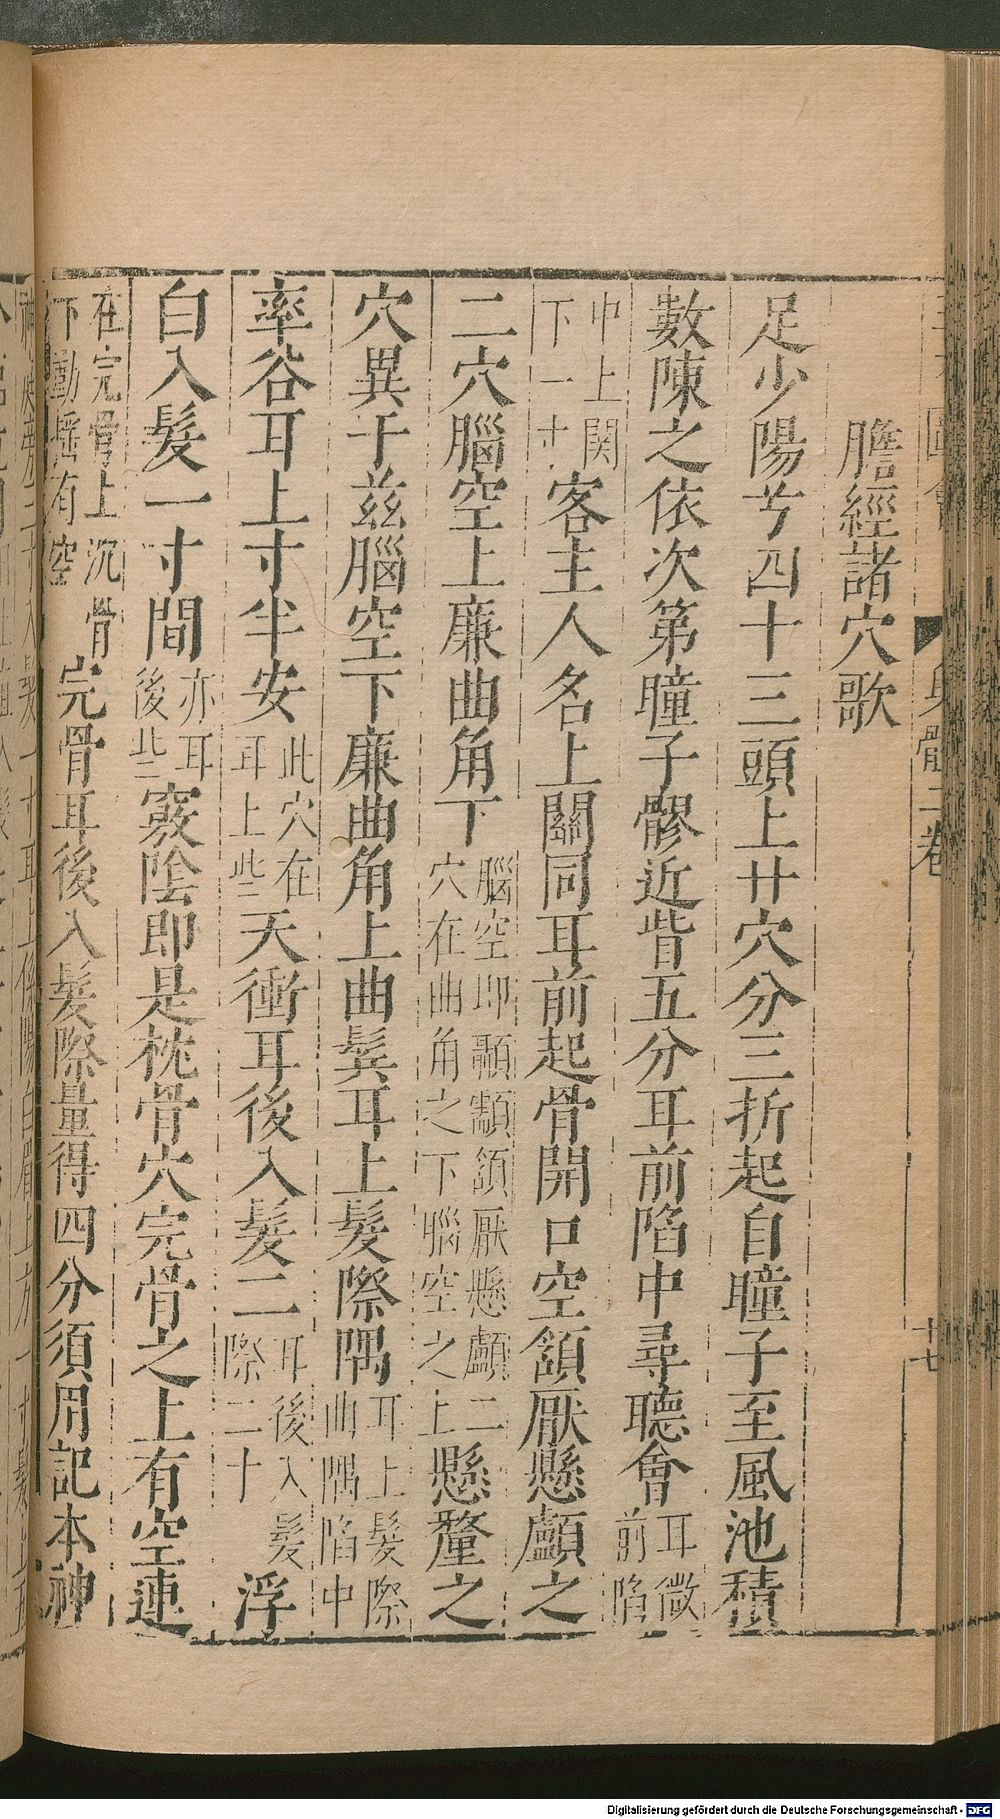 膽經諸穴歌
足少陽兮四十三頭上廿穴分三折起自瞳子至風池積
數陳之依次第瞳子髎近眥五分耳前陷中尋聽會耳微前陷
中上関下一寸客主人名上關同耳前起骨開口空頷厭懸顱之
二穴腦空上廉曲角下腦空即顳顬頷厭懸顱二穴在曲角之下腦空之上懸釐之
穴異于兹腦空下廉曲角上曲鬢耳上髮際隅耳上髮際曲隅陷中
率谷耳上寸半安此穴在耳上些天衝耳後入髮二耳後入髮際二十浮
白入髮一寸間亦耳後些竅陰即是枕骨穴完骨之上有空連
在完骨上沉骨下動搖有空完骨耳後入髮際量得四分須用記本神
七
Digitalisierung gefördert durch die Deutsche Forschungsgemeinschaft - DFG